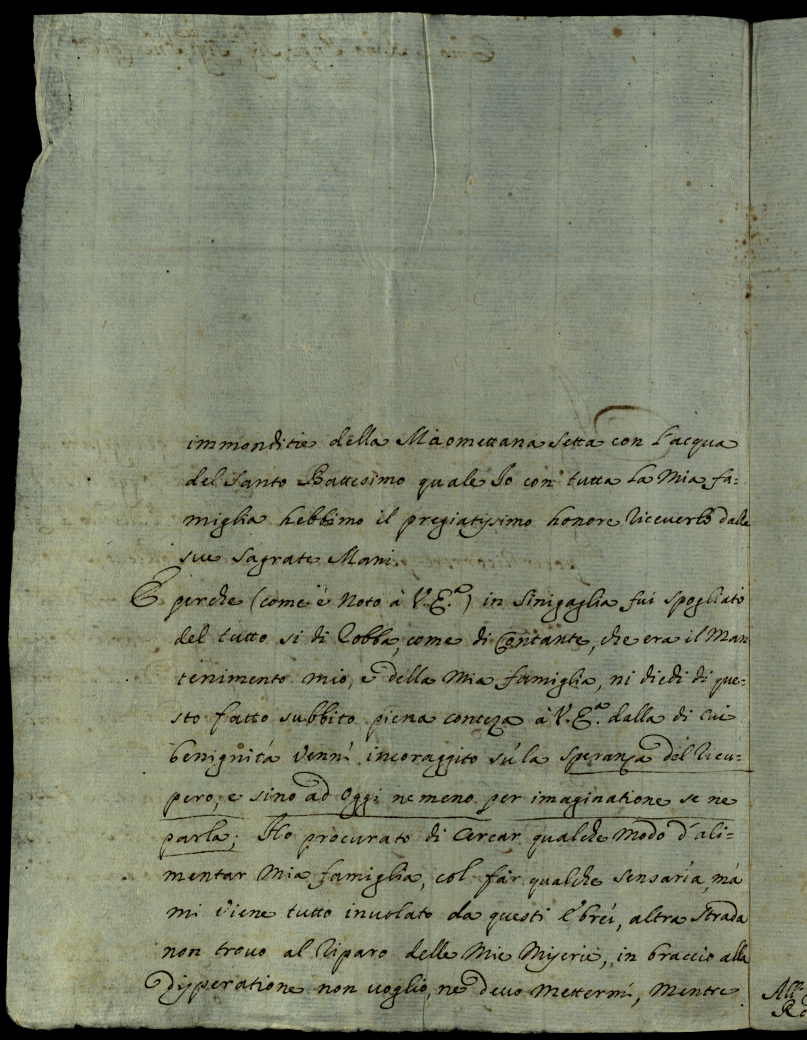 immonditie della Màomettana Setta con l'acqua
del Santo Battesimo quale Io con tutta La Mia fa:
miglia hebbimo il pregiatissimo honore riceverlo dalle
sue Sagrate Mani.
E perche (come è Noto à V. E.ª) in Sinigaglia fui spogliato
del tutto si di Robba, come di Contante, che era il Man
tenimento mio, e della Mia famiglia, ni diedi di que:
sto fatto subbito piena conteza à V. E.ª dalla di cui
benignità venni incoraggito sù la speranza del ricu:
pero, e sino ad Oggi nemeno per imaginatione se ne
parla; Ho procurato di Cercar qualche modo d'ali:
mentar Mia famiglia, col far qualche sensaria, mà
mi viene tutto involato da questi Ebrei, altra Strada
non trovo al riparo delle Mie Miserie, in braccio alla
disperatione non voglio, ne devo Mettermi, Mentre
All'